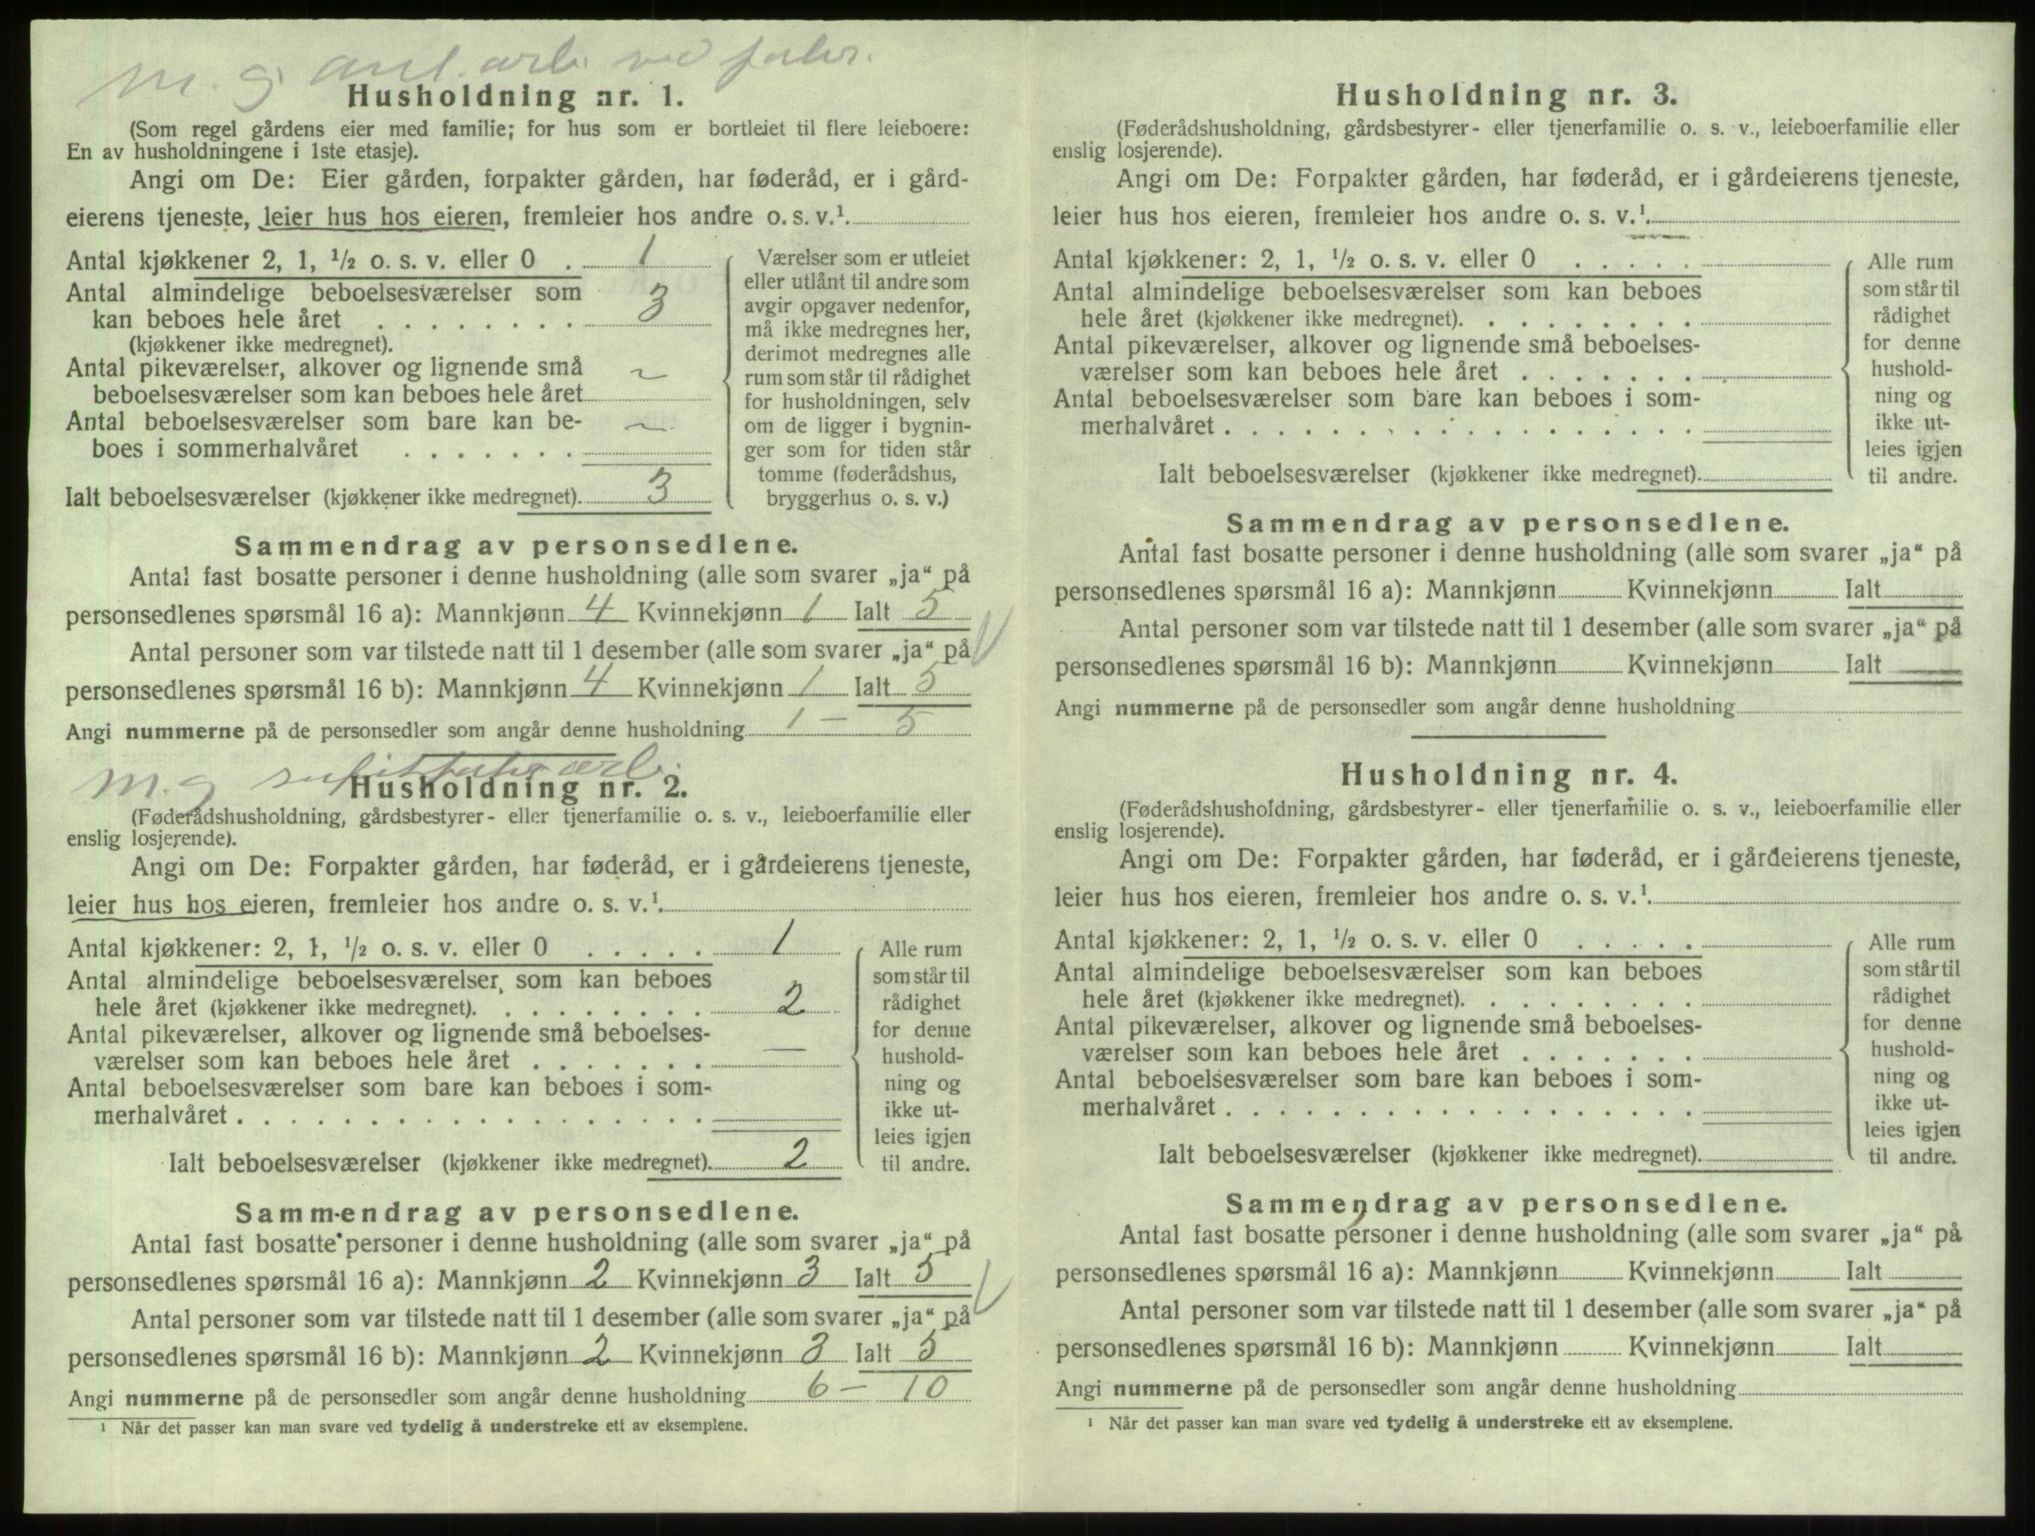 m. g. anl. arb. ved
Husholdning nr. 1.
(Som regel gårdens eier med familie; for hus som er bortleiet til flere leieboere:
En av husholdningene i 1ste etasje).
Angi om De: Eier gården, forpakter gården, har føderåd, er i gård-
eierens tjeneste, leier hus hos eieren, fremleier hos andre o. s. v.¹.
Antal kjøkkener 2, 1, ½ o. s. v. eller 0 . 1
Antal almindelige beboelsesværelser som
kan beboes hele året . . . . . . . . 3
(kjøkkener ikke medregnet).
Antal pikeværelser, alkover og lignende små
beboelsesværelser som kan beboes hele året ~
Antal beboelsesværelser som bare kan be-
boes i sommerhalvåret . . . . . . . ~
Ialt beboelsesværelser (kjøkkener ikke medregnet). 3
Værelser som er utleiet
eller utlånt til andre som
avgir opgaver nedenfor,
må ikke medregnes her,
derimot medregnes alle
rum som står til rådighet
for husholdningen, selv
om de ligger i bygnin-
ger som for tiden står
tomme (føderådshus,
bryggerhus o. s. v.)
Sammendrag av personsedlene.
Antal fast bosatte personer i denne husholdning (alle som svarer „ja“ på
personsedlenes spørsmål 16 a): Mannkjønn 4 Kvinnekjønn 1 Ialt 5
Antal personer som var tilstede natt til 1 desember (alle som svarer „ja“ på
personsedlenes spørsmål 16 b): Mannkjønn 4 Kvinnekjønn 1 Ialt 5
Angi nummerne på de personsedler som angår denne husholdning 1 – 5
m. g. sulfittfabr arb.
Husholdning nr. 2.
(Føderådshusholdning, gårdsbestyrer- eller tjenerfamilie o. s. v., leieboerfamilie eller
enslig losjerende).
Angi om De: Forpakter gården, har føderåd, er i gårdeierens tjeneste,
leier hus hos eieren, fremleier hos andre o. s. v.¹.
Antal kjøkkener: 2, 1, ½ o. s. v. eller 0 . . . . . 1
Antal almindelige beboelsesværelser som kan beboes
hele året (kjøkkener ikke medregnet). . . . . . . . . 2
Antal pikeværelser, alkover og lignende små beboelses-
værelser som kan beboes hele året . . . . . . . —
Antal beboelsesværelser som bare kan beboes i som-
merhalvåret . . . . . . . . . . . . . . . . . .
Ialt beboelsesværelser (kjøkkener ikke medregnet). 2
Alle rum
som står til
rådighet
for denne
hushold-
ning og
ikke ut-
leies igjen
til andre.
Sammendrag av personsedlene.
Antal fast bosatte personer i denne husholdning (alle som svarer „ja“ på
personsedlenes spørsmål 16 a): Mannkjønn 2 Kvinnekjønn 3 Ialt 5
Antal personer som var tilstede natt til 1 desember (alle som svarer „ja“ på
personsedlenes spørsmål 16 b): Mannkjønn 2 Kvinnekjønn 3 Ialt 5
Angi nummerne på de personsedler som angår denne husholdning 6 – 10
¹ Når det passer kan man svare ved tydelig å understreke ett av eksemplene.
Husholdning nr. 3.
(Føderådshusholdning, gårdsbestyrer- eller tjenerfamilie o. s. v., leieboerfamilie eller
enslig losjerende).
Angi om De: Forpakter gården, har føderåd, er i gårdeierens tjeneste,
leier hus hos eieren, fremleier hos andre o. s. v.¹.
Antal kjøkkener: 2, 1, ½ o. s. v. eller 0 . . . . .
Antal almindelige beboelsesværelser som kan beboes
hele året (kjøkkener ikke medregnet). . . . . . . . .
Antal pikeværelser, alkover og lignende små beboelses-
værelser som kan beboes hele året . . . . . . .
Antal beboelsesværelser som bare kan beboes i som-
merhalvåret . . . . . . . . . . . . . . . . . .
Ialt beboelsesværelser (kjøkkener ikke medregnet).
Alle rum
som står til
rådighet
for denne
hushold-
ning og
ikke ut-
leies igjen
til andre.
Sammendrag av personsedlene.
Antal fast bosatte personer i denne husholdning (alle som svarer „ja“ på
personsedlenes spørsmål 16 a): Mannkjønn Kvinnekjønn Ialt
Antal personer som var tilstede natt til 1 desember (alle som svarer „ja“ på
personsedlenes spørsmål 16 b): Mannkjønn Kvinnekjønn Ialt
Angi nummerne på de personsedler som angår denne husholdning
Husholdning nr. 4.
(Føderådshusholdning, gårdsbestyrer- eller tjenerfamilie o. s. v., leieboerfamilie eller
enslig losjerende).
Angi om De: Forpakter gården, har føderåd, er i gårdeierens tjeneste,
leier hus hos eieren, fremleier hos andre o. s. v.¹.
Antal kjøkkener: 2, 1, ½ o. s. v. eller 0 . . . . .
Antal almindelige beboelsesværelser som kan beboes
hele året (kjøkkener ikke medregnet). . . . . . . . .
Antal pikeværelser, alkover og lignende små beboelses-
værelser som kan beboes hele året . . . . . . .
Antal beboelsesværelser som bare kan beboes i som-
merhalvåret . . . . . . . . . . . . . . . . . .
Ialt beboelsesværelser (kjøkkener ikke medregnet).
Alle rum
som står til
rådighet
for denne
hushold-
ning og
ikke ut-
leies igjen
til andre.
Sammendrag av personsedlene.
Antal fast bosatte personer i denne husholdning (alle som svarer „ja“ på
personsedlenes spørsmål 16 a): Mannkjønn Kvinnekjønn Ialt
Antal personer som var tilstede natt til 1 desember (alle som svarer „ja“ på
personsedlenes spørsmål 16 b): Mannkjønn Kvinnekjønn Ialt
Angi nummerne på de personsedler som angår denne husholdning
¹ Når det passer kan man svare ved tydelig å understreke ett av eksemplene.